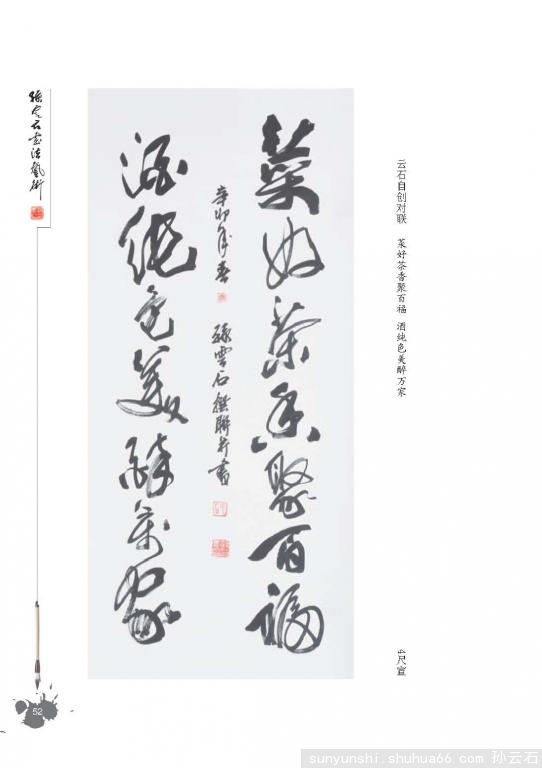 孫雲石書法藝術
云石自创对联 菜好茶香聚百福 酒纯色美醉万家
四尺宣
菜好茶香聚百福
酒纯色美醉萬家
辛卯年春
孫雲石撰聯并書
52
sunyunshi.shuhua66.com 孙云石